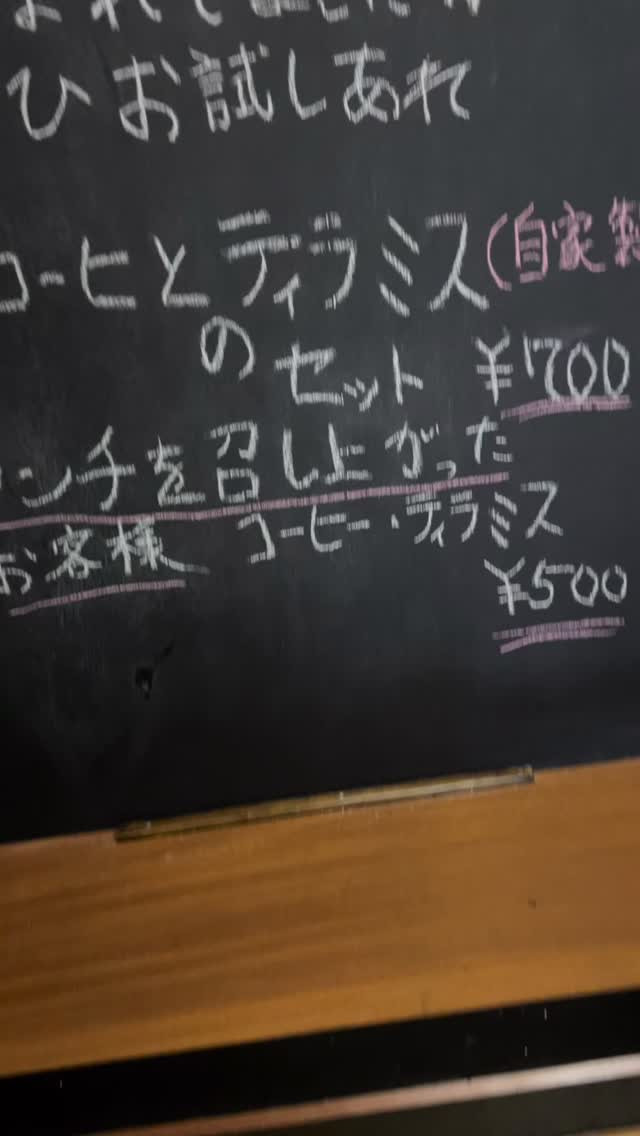 ひお試しあれ
コーヒとティラミス(自家製
のセット ¥700
ンチを召し上がった
お客様 コーヒー・ティラミス
¥500